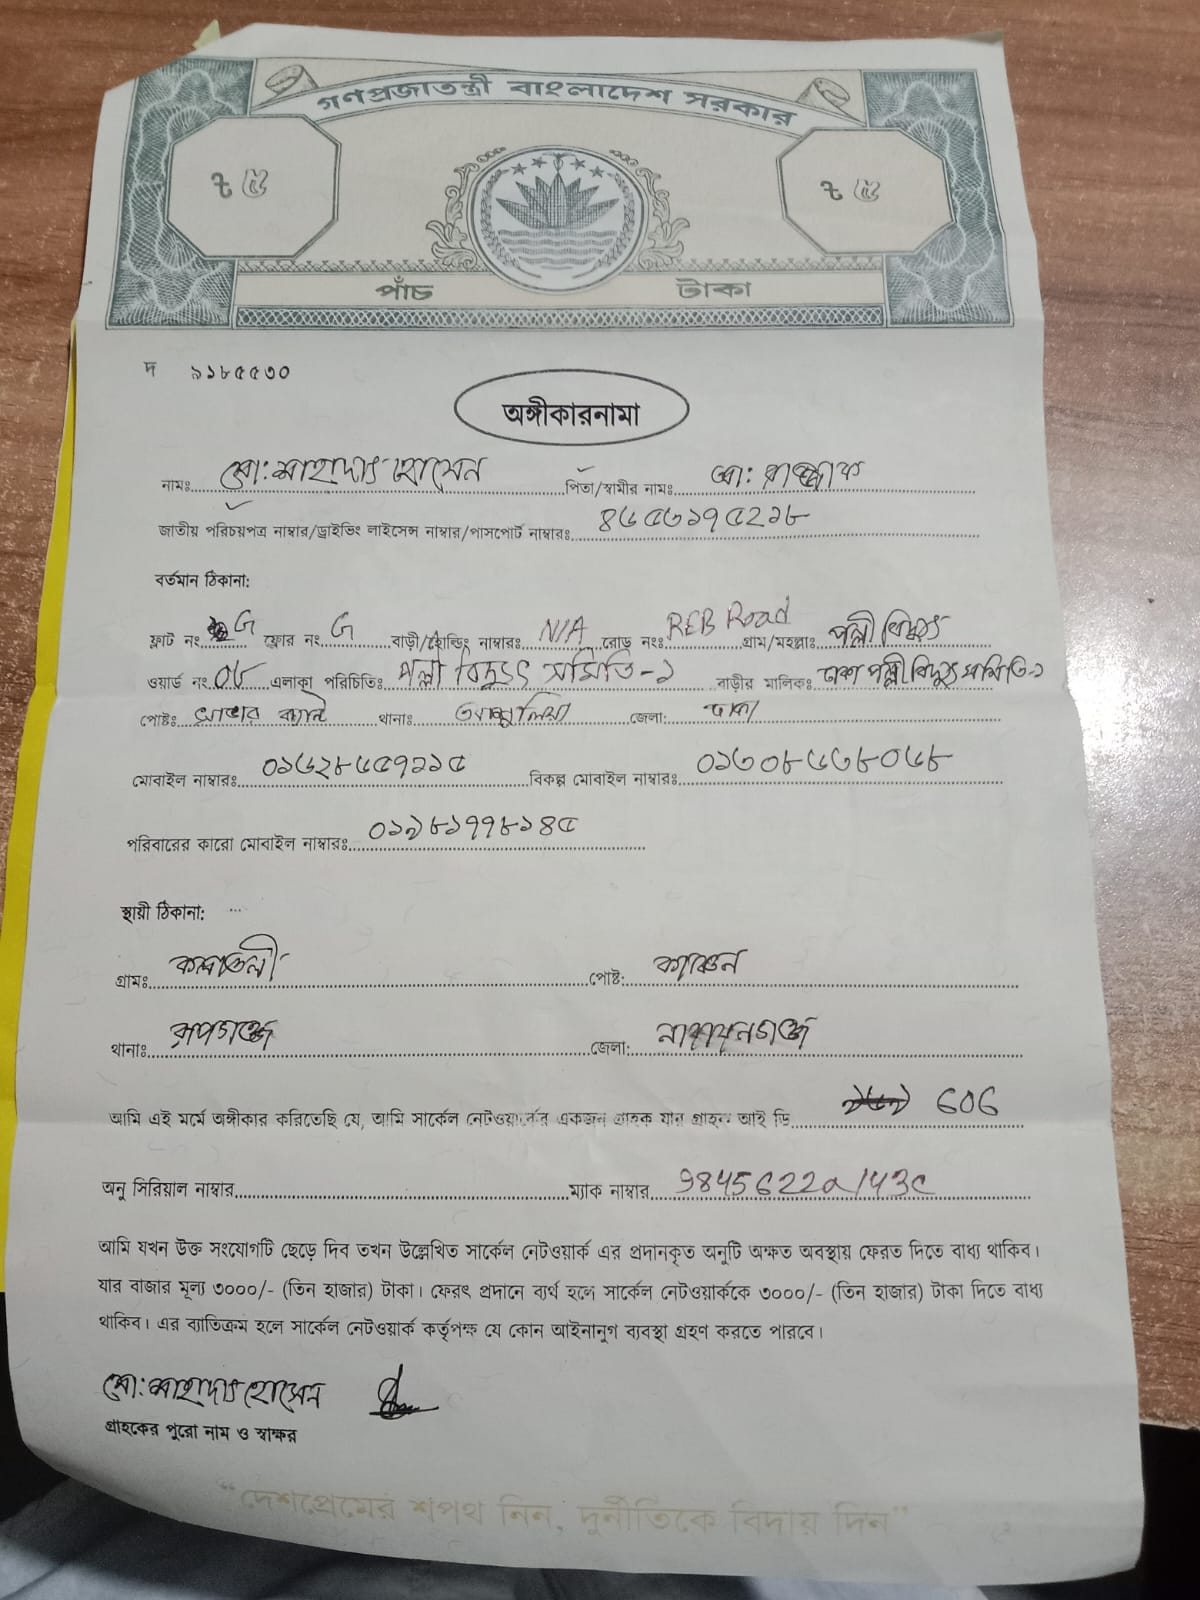 গণপ্রজাতন্ত্রী বাংলাদেশ সরকার
৳ ৫ ৳ ৫
পাঁচ টাকা
দ ৯১৮৫৫৩০
অঙ্গীকারনামা
নামঃ মো: সাহাদাৎ হোসেন পিতা/স্বামীর নামঃ মো: রাজ্জাক
জাতীয় পরিচয়পত্র নাম্বার/ড্রাইভিং লাইসেন্স নাম্বার/পাসপোর্ট নাম্বারঃ
বর্তমান ঠিকানা:
ফ্লাট নং G ফ্লোর নং G বাড়ী/হোল্ডিং নাম্বারঃ N/A রোড নংঃ REB Road গ্রাম/মহল্লাঃ পল্লী বিদ্যুৎ
ওয়ার্ড নং ০৮ এলাকা পরিচিতিঃ পল্লী বিদ্যুৎ সমিতি-১ বাড়ীর মালিকঃ ঢাকা পল্লী বিদ্যুৎ সমিতি-১
পোষ্টঃ সাভার ক্যান্ট থানাঃ আশুলিয়া জেলা: ঢাকা
মোবাইল নাম্বারঃ বিকল্প মোবাইল নাম্বারঃ
পরিবারের কারো মোবাইল নাম্বারঃ
স্থায়ী ঠিকানা:
গ্রামঃ কলাতলী পোষ্ট: কাঞ্চন
থানাঃ রূপগঞ্জ জেলা: নারায়নগঞ্জ
আমি এই মর্মে অঙ্গীকার করিতেছি যে, আমি সার্কেল নেটওয়ার্কের একজন গ্রাহক যার গ্রাহক আই ডি 606
অনু সিরিয়াল নাম্বার ম্যাক নাম্বার
আমি যখন উক্ত সংযোগটি ছেড়ে দিব তখন উল্লেখিত সার্কেল নেটওয়ার্ক এর প্রদানকৃত অনুটি অক্ষত অবস্থায় ফেরত দিতে বাধ্য থাকিব।
যার বাজার মূল্য ৩০০০/- (তিন হাজার) টাকা। ফেরৎ প্রদানে ব্যর্থ হলে সার্কেল নেটওয়ার্ককে ৩০০০/- (তিন হাজার) টাকা দিতে বাধ্য
থাকিব। এর ব্যতিক্রম হলে সার্কেল নেটওয়ার্ক কর্তৃপক্ষ যে কোন আইনানুগ ব্যবস্থা গ্রহণ করতে পারবে।
মো: সাহাদাৎ হোসেন
গ্রাহকের পুরো নাম ও স্বাক্ষর
“দেশপ্রেমের শপথ নিন, দুর্নীতিকে বিদায় দিন”